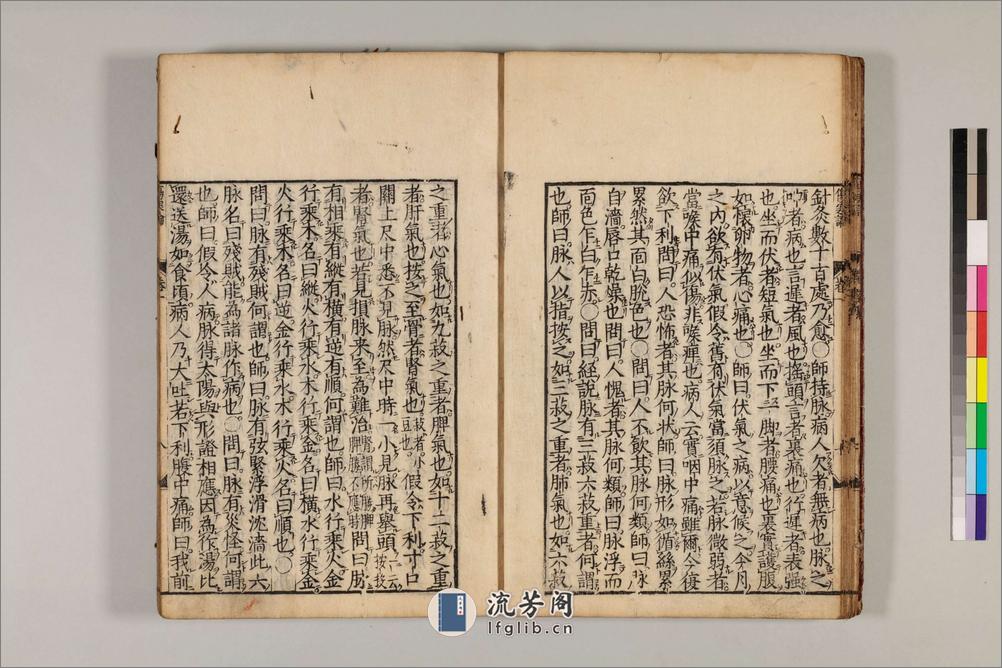 針灸數十百處乃愈○師持脉病人欠者無病也脉之
呻者病也言遲者風也搖頭言者裏痛也行遲者表強
也坐而伏者短氣也坐而下一脚者腰痛也裏實護腹
如懷卵物者心痛也○師曰伏氣之病以意候之今月
之內欲有伏氣假令舊有伏氣當須脉之若脉微弱者
當喉中痛似傷非喉痺也病人云實咽中痛雖爾今復
欲下利問曰人恐怖者其脉何狀師曰脉形如循絲累
累然其面白脫色也○問曰人不飲其脉何類師曰脉
自濇唇口乾燥也問曰人愧者其脉何類師曰脉浮而
面色乍白乍赤○問曰經說脉有三菽六菽重者何謂
也師曰脉人以指按之如三菽之重者肺氣也如六菽
之重者心氣也如九菽之重者脾氣也如十二菽之重
者肝氣也按之至骨者腎氣也菽者小豆也假令下利寸口
關上尺中悉不見脉然尺中時一小見脉再舉頭一云按投
者腎氣也若見損脉来至為難治問曰脉
有相乘有縱有橫有逆有順何謂也師曰水行乘火金
行乘木名曰縱火行乘水木行乘金名曰橫水行乘金
火行乘木名曰逆金行乘水木行乘火名曰順也○
問曰脉有殘賊何謂也師曰脉有弦緊浮滑沈濇此六
脉名曰殘賊能為諸脉作病也○問曰脉有災怪何謂
也師曰假令人病脉得太陽與形證相應因為作湯比
還送湯如食頃病人乃大吐若下利腹中痛師曰我前
流芳阁
lfglib.cn